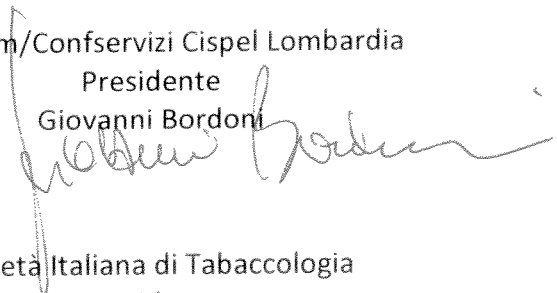 m/Confservizi Cispel Lombardia
Presidente
Giovanni Bordoni
Giovanni Bordoni
età Italiana di Tabaccologia